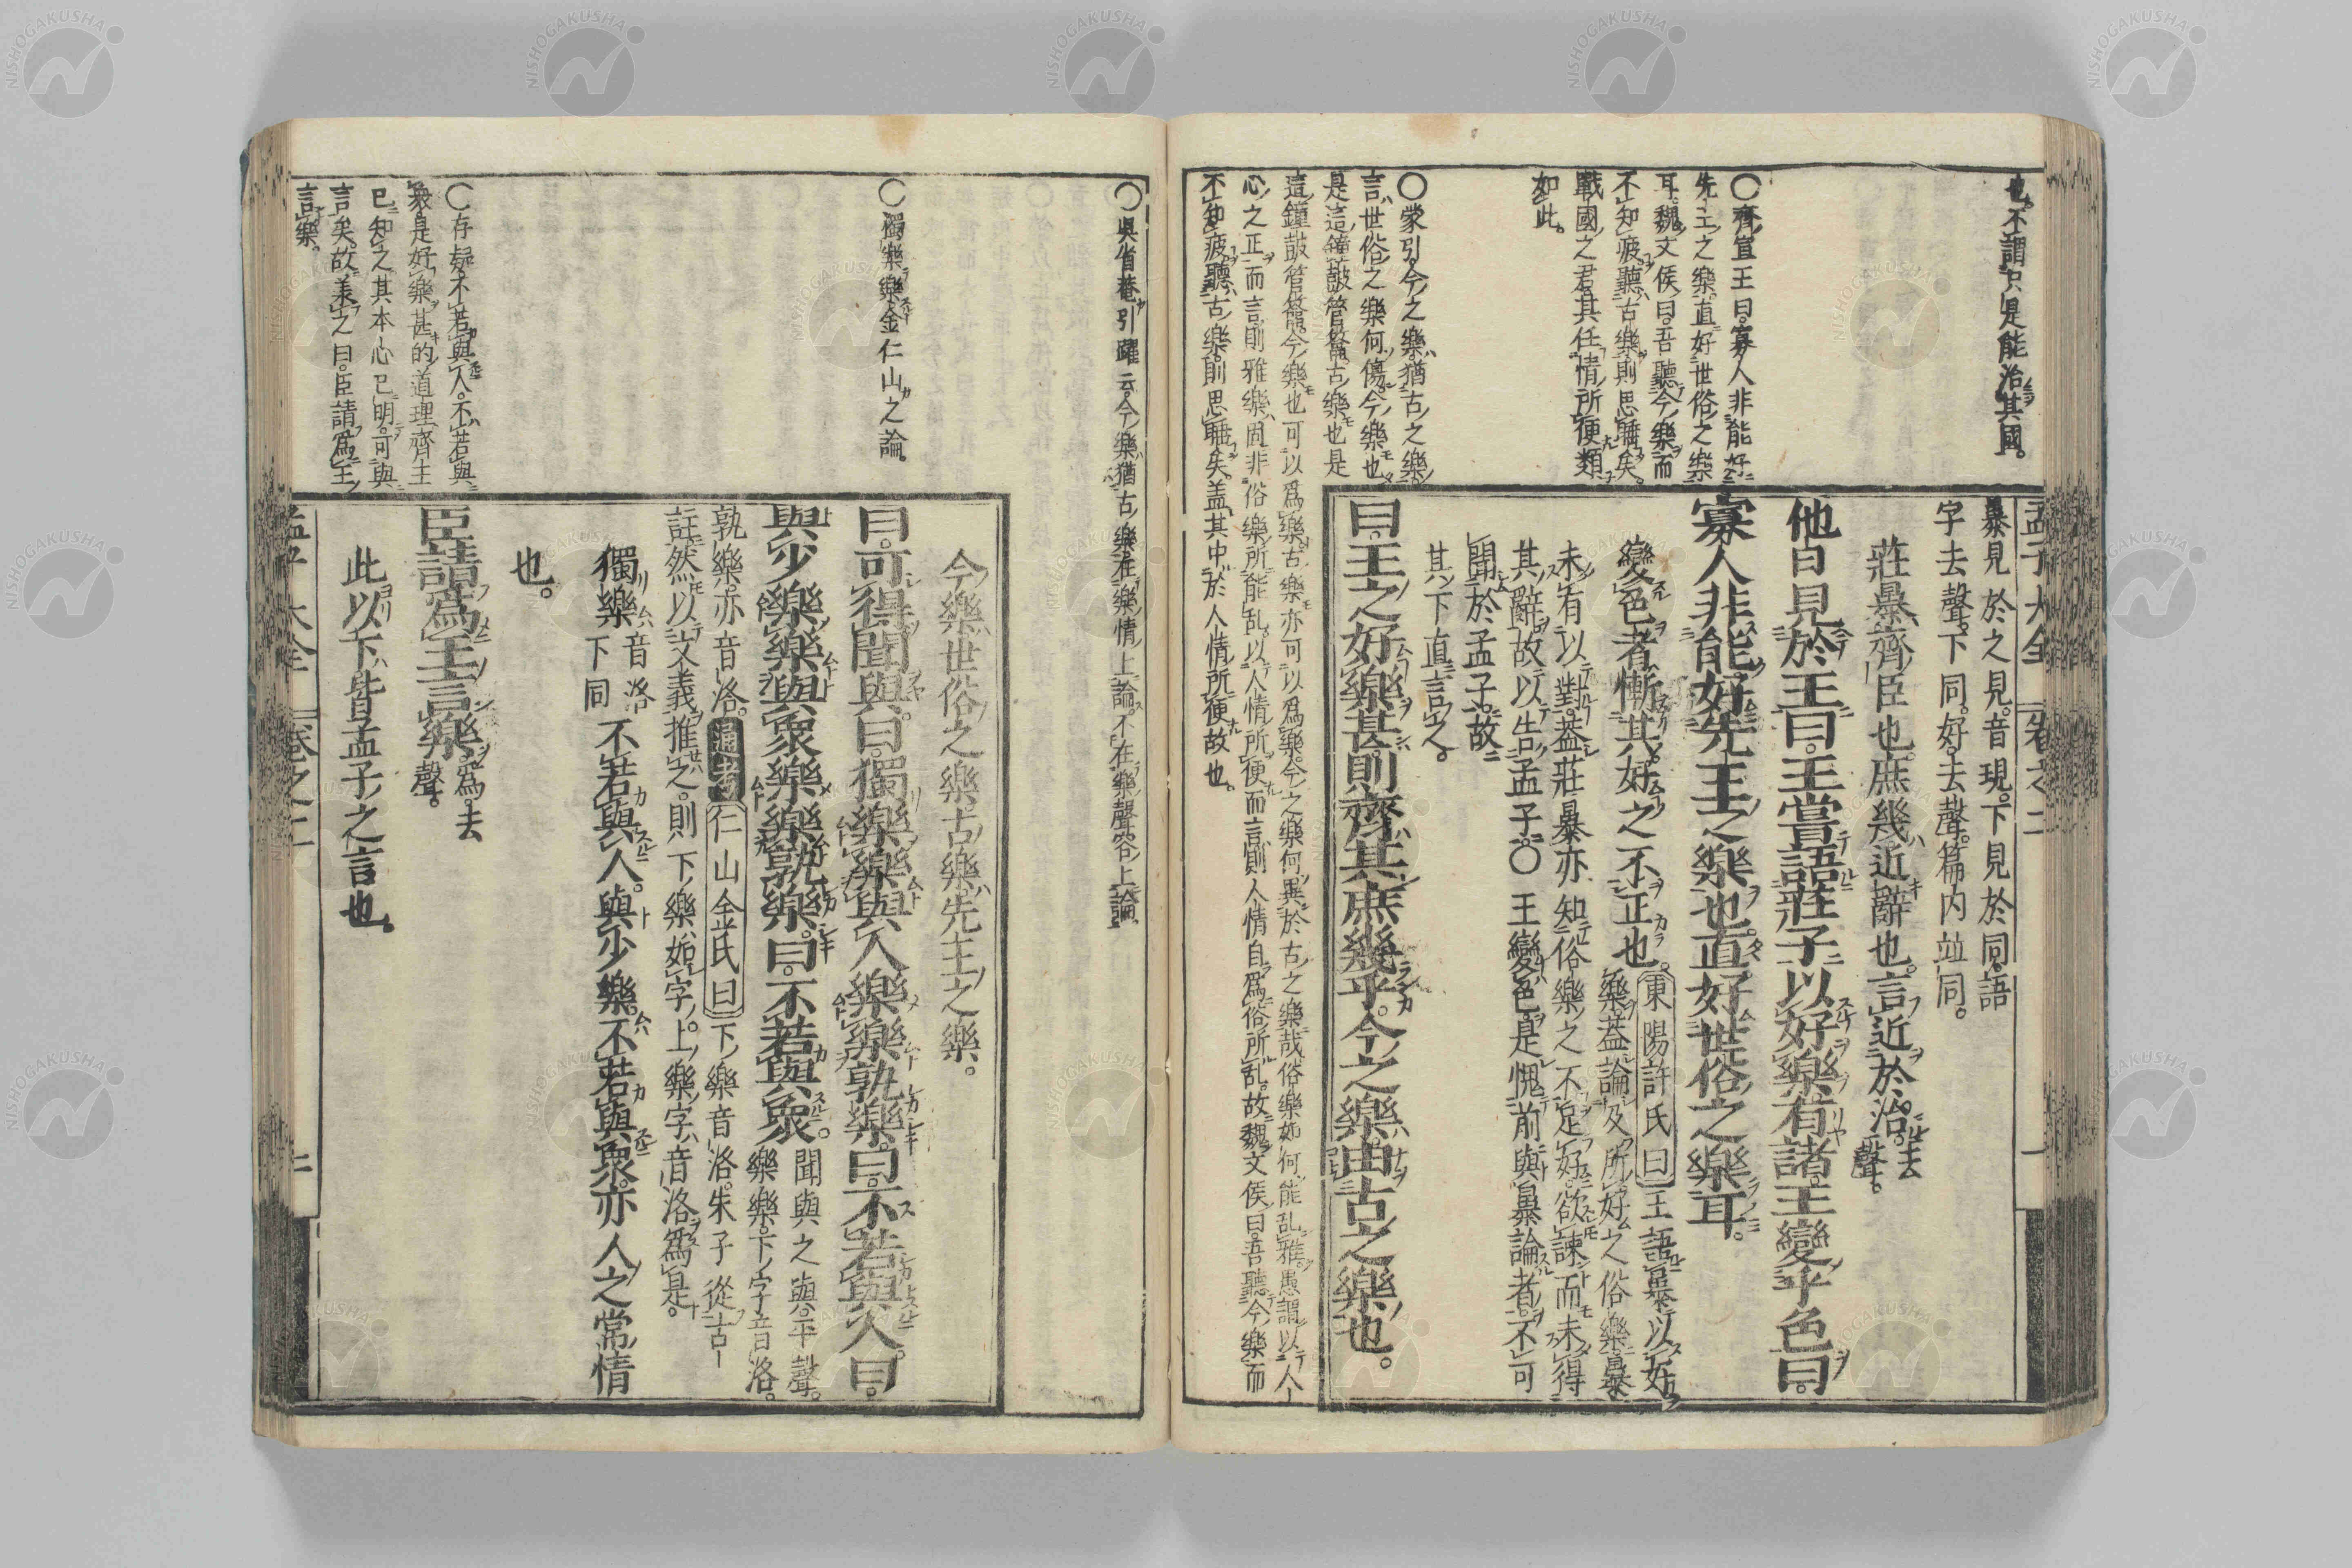 也。不謂只是能治其國。
〇齊宣王曰。寡人非能好
先王之樂。直好世俗之樂
耳。魏文侯曰。吾聽今樂而
不知疲。聽古樂則思睡矣。
戰國之君。其任情所便類
如此。
〇蒙引。今之樂猶古之樂。
言世俗之樂何傷。今樂也
是這鐘鼓管籥。古樂也是
這鐘鼓管籥。今樂也可以爲樂。古樂亦可以爲樂。今之樂何異於古之樂哉。俗樂如何能乱雅。愚謂以人
心之正而言。則雅樂固非俗樂所能乱。以人情所便而言。則人情自爲俗所乱。故魏文侯曰。吾聽今樂而
不知疲。聽古樂。則思睡矣。盖其中於人情所便故也。
孟子大全 卷之二 一
暴見於之見。音現。下見於同。語
字去聲。下同。好。去聲。篇内竝同。
莊暴。齊臣也。庶幾。近辭也。言近於治。去聲。
他日見於王曰。王嘗語莊子以好樂有諸。王變乎色曰。
寡人非能好先王之樂也。直好世俗之樂耳。
變色者。慚其好之不正也。東陽許氏曰王語暴以好
樂。蓋論及所好之俗樂。暴
未有以對。蓋莊暴亦知俗樂之不足好。欲諫而未得
其辭。故以告孟子。〇王變色。是愧前與暴論者。不可
聞於孟子。故
其下直言之。
曰。王之好樂甚。則齊其庶幾乎。今之樂。由古之樂也。
〇吳省菴引躍云。今樂猶古樂。在樂情上論。不在樂聲容上論。
〇獨樂樂金仁山之論。
〇存疑。不若與人。不若與
衆。是好樂甚的道理。齊王
已知之。其本心已明。可與
言矣。故美之曰。臣請爲王
言樂。
今樂。世俗之樂。古樂。先王之樂。
曰。可得聞與。曰。獨樂樂。與人樂樂。孰樂。曰。不若與人。曰。
與少樂樂。與衆樂樂。孰樂。曰。不若與衆。聞與之與。平聲。
樂樂。下字音洛。
孰樂。亦音洛。通考仁山金氏曰下樂音洛。朱子從古
註。然以文義推之。則下樂如字。上樂字音洛爲是。
獨樂音洛下同不若與人。與少樂。不若與衆。亦人之常情
也。
臣請爲王言樂。爲。去聲。
此以下。皆孟子之言也。
孟子大全 卷之二 二